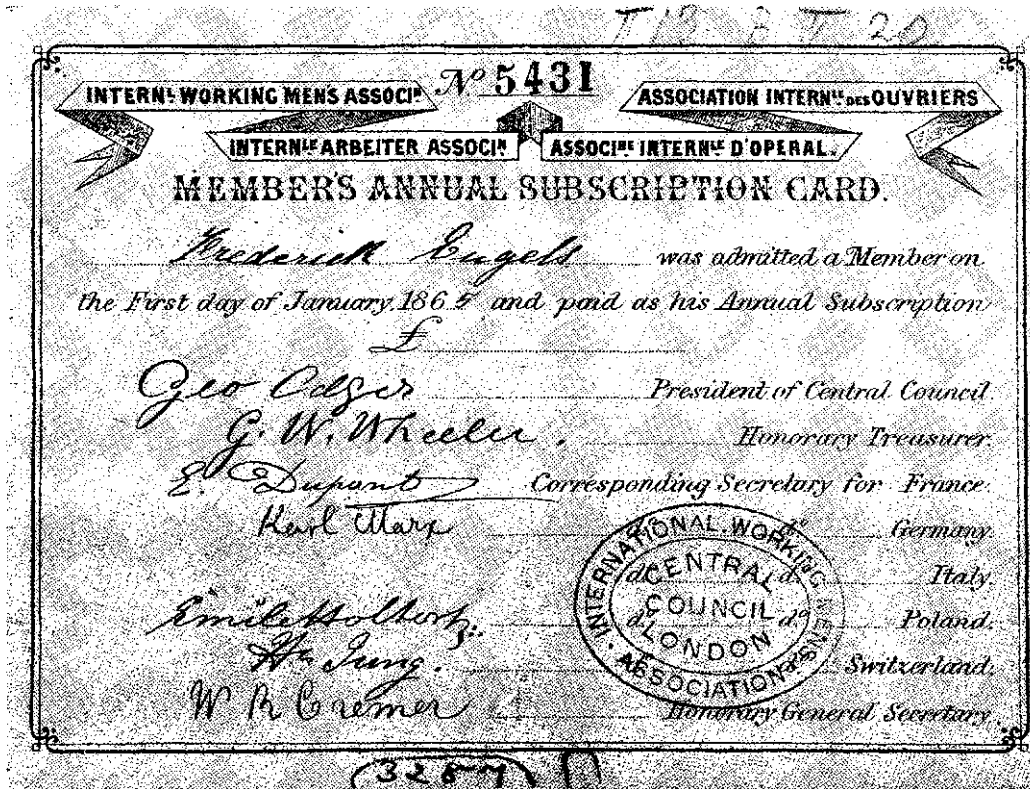 Nº 5431
INTERNL WORKING MEN'S ASSOCIN
ASSOCIATION INTERNLE DES OUVRIERS
INTERNLE ARBEITER ASSOCIN
ASSOCINE INTERNLE D'OPERAI.
MEMBER'S ANNUAL SUBSCRIPTION CARD.
Frederick Engels was admitted a Member on
the First day of January 1865 and paid as his Annual Subscription
£
Geo Odger President of Central Council
G. W. Wheeler. Honorary Treasurer.
E. Dupont Corresponding Secretary for France.
Karl Marx dº Germany.
dº dº Italy.
Emile Holtorp. dº dº Poland.
H. Jung. Switzerland.
W R Cremer Honorary General Secretary.
INTERNATIONAL WORKING MEN'S ASSOCIATION
CENTRAL
COUNCIL
LONDON
3287